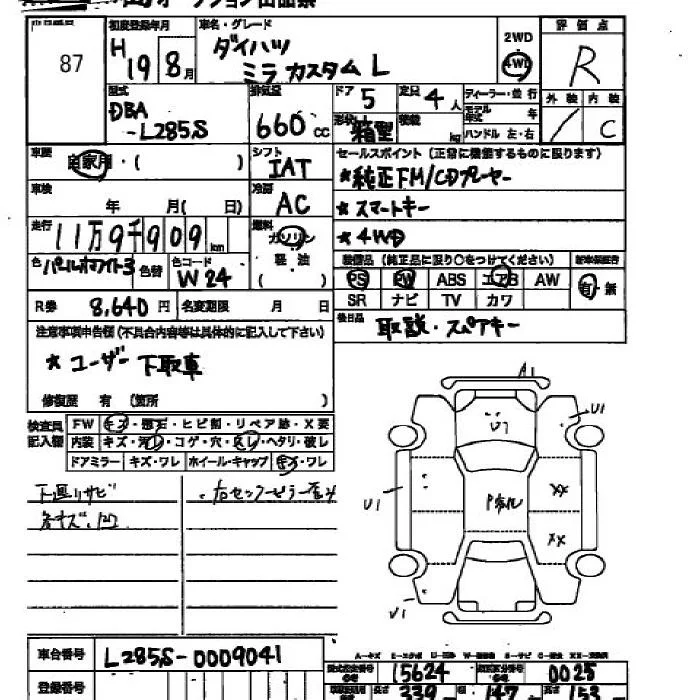 87
初度登録年月
H 19年 8月
車名・グレード
ダイハツ
ミラ カスタム L
2WD
4WD
評価点
R
型式
DBA
-L285S
排気量
660 cc
ドア 5
定員 4人
形状 箱型
積載 kg
ディーラー・並行
モデル年式 年
ハンドル 左・右
外装 内装
C
車歴
自家用・( )
シフト
IAT
セールスポイント (正常に機能するものに限ります)
★純正FM/CDプレーヤー
★スマートキー
★4WD
車検
年 月( 日)
冷房
AC
走行
11万9千909 km
燃料
ガソリン
軽油
( )
色 パールホワイト3
色替
色コード
W24
装備品 (純正品に限り○をつけてください)
新車保証書
PS PW ABS エアB AW
SR ナビ TV カワ
有・無
R券 8,640円
名変期限 月 日
後日品
取説・スペアキー
注意事項申告欄(不具合内容等は具体的に記入して下さい)
★ユーザー下取車
修復歴 有 (箇所 )
検査員
記入欄
FW キズ・飛石・ヒビ割・リペア跡・X要
内装 キズ・汚レ・コゲ・穴・スレ・ヘタリ・破レ
ドアミラー キズ・ワレ ホイール・キャップ キズ・ワレ
下廻りサビ
A1
U1
U1
U1
V1
Pガル
XX
XX
車台番号
L285S-0009041
登録番号
型式指定番号
15624
類別区分番号
0025
長さ 339
幅 147
高さ 153